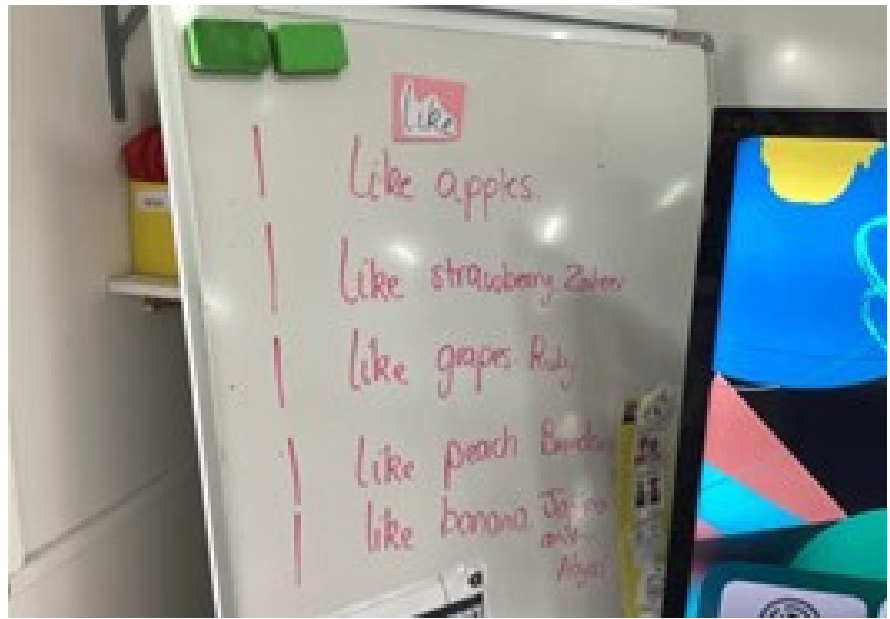 like
I like apples.
I like strawberry
I like grapes Ruby
I like peach
I like banana.
and